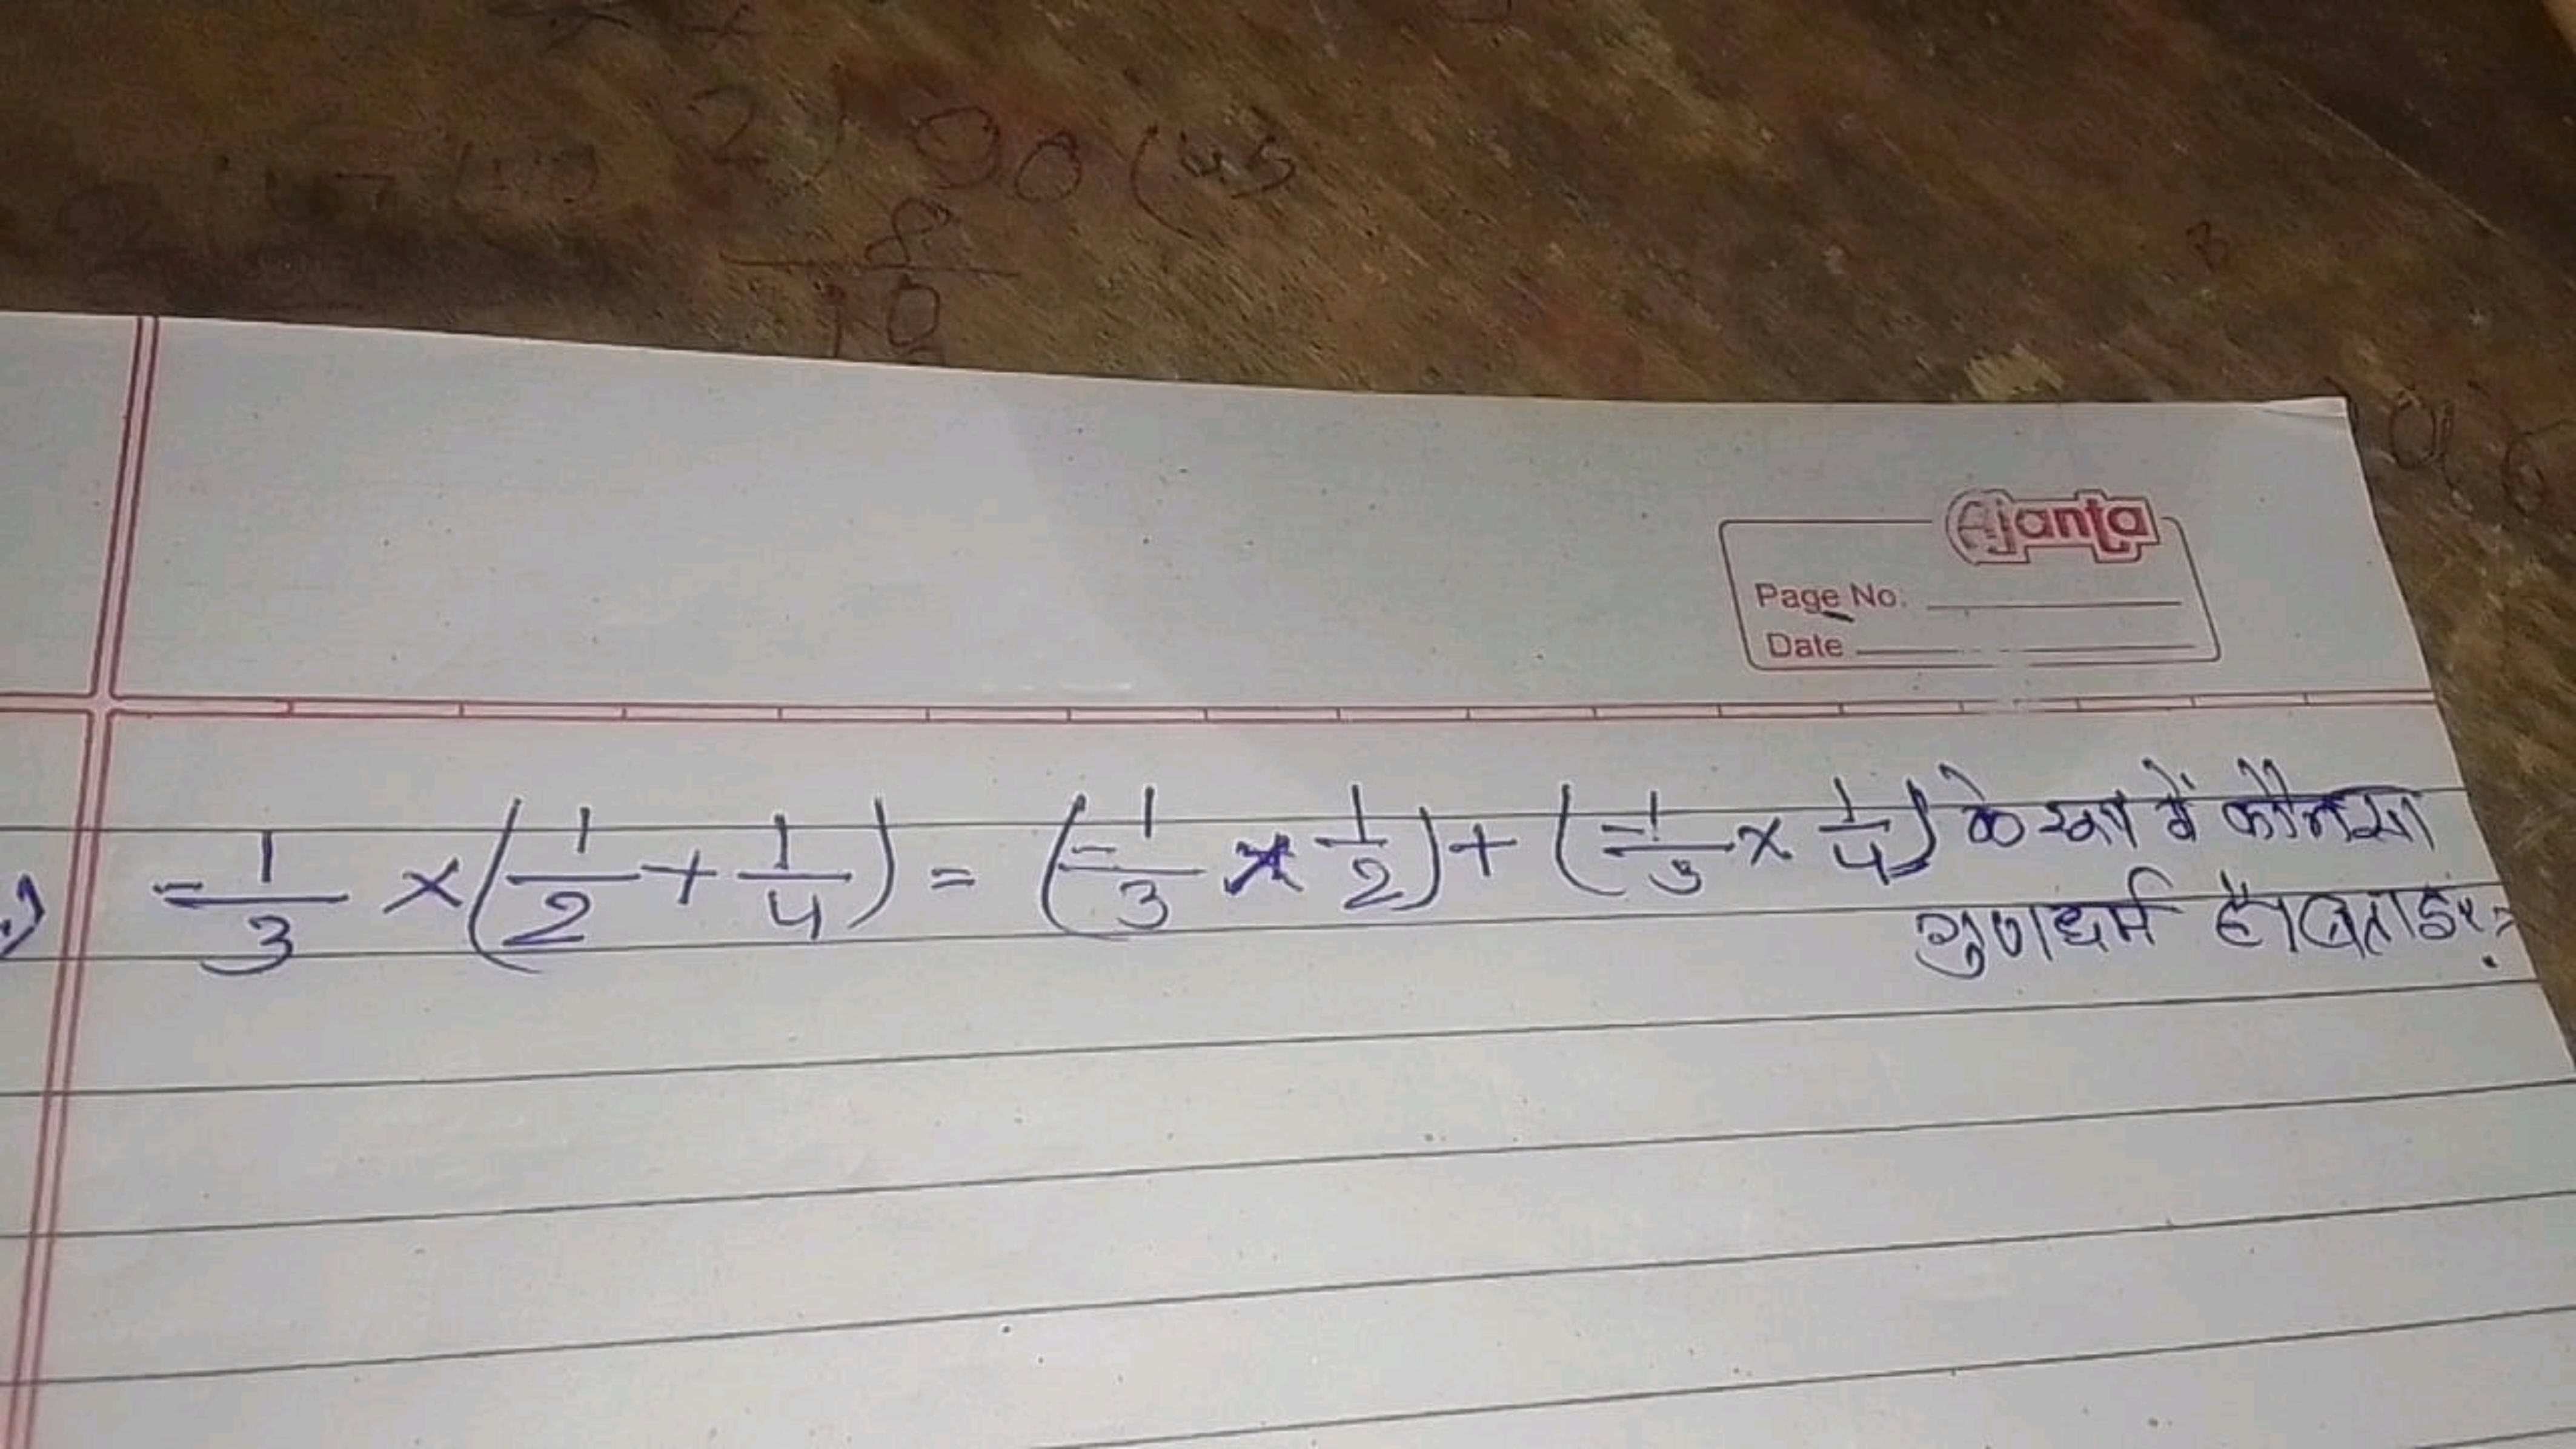 2) 90 (45
8
10
Ajanta
Page No.
Date
-1/3 × (1/2 + 1/4) = (-1/3 × 1/2) + (-1/3 × 1/4) के रूप में कौनसा
गुणधर्म है। बताइए?